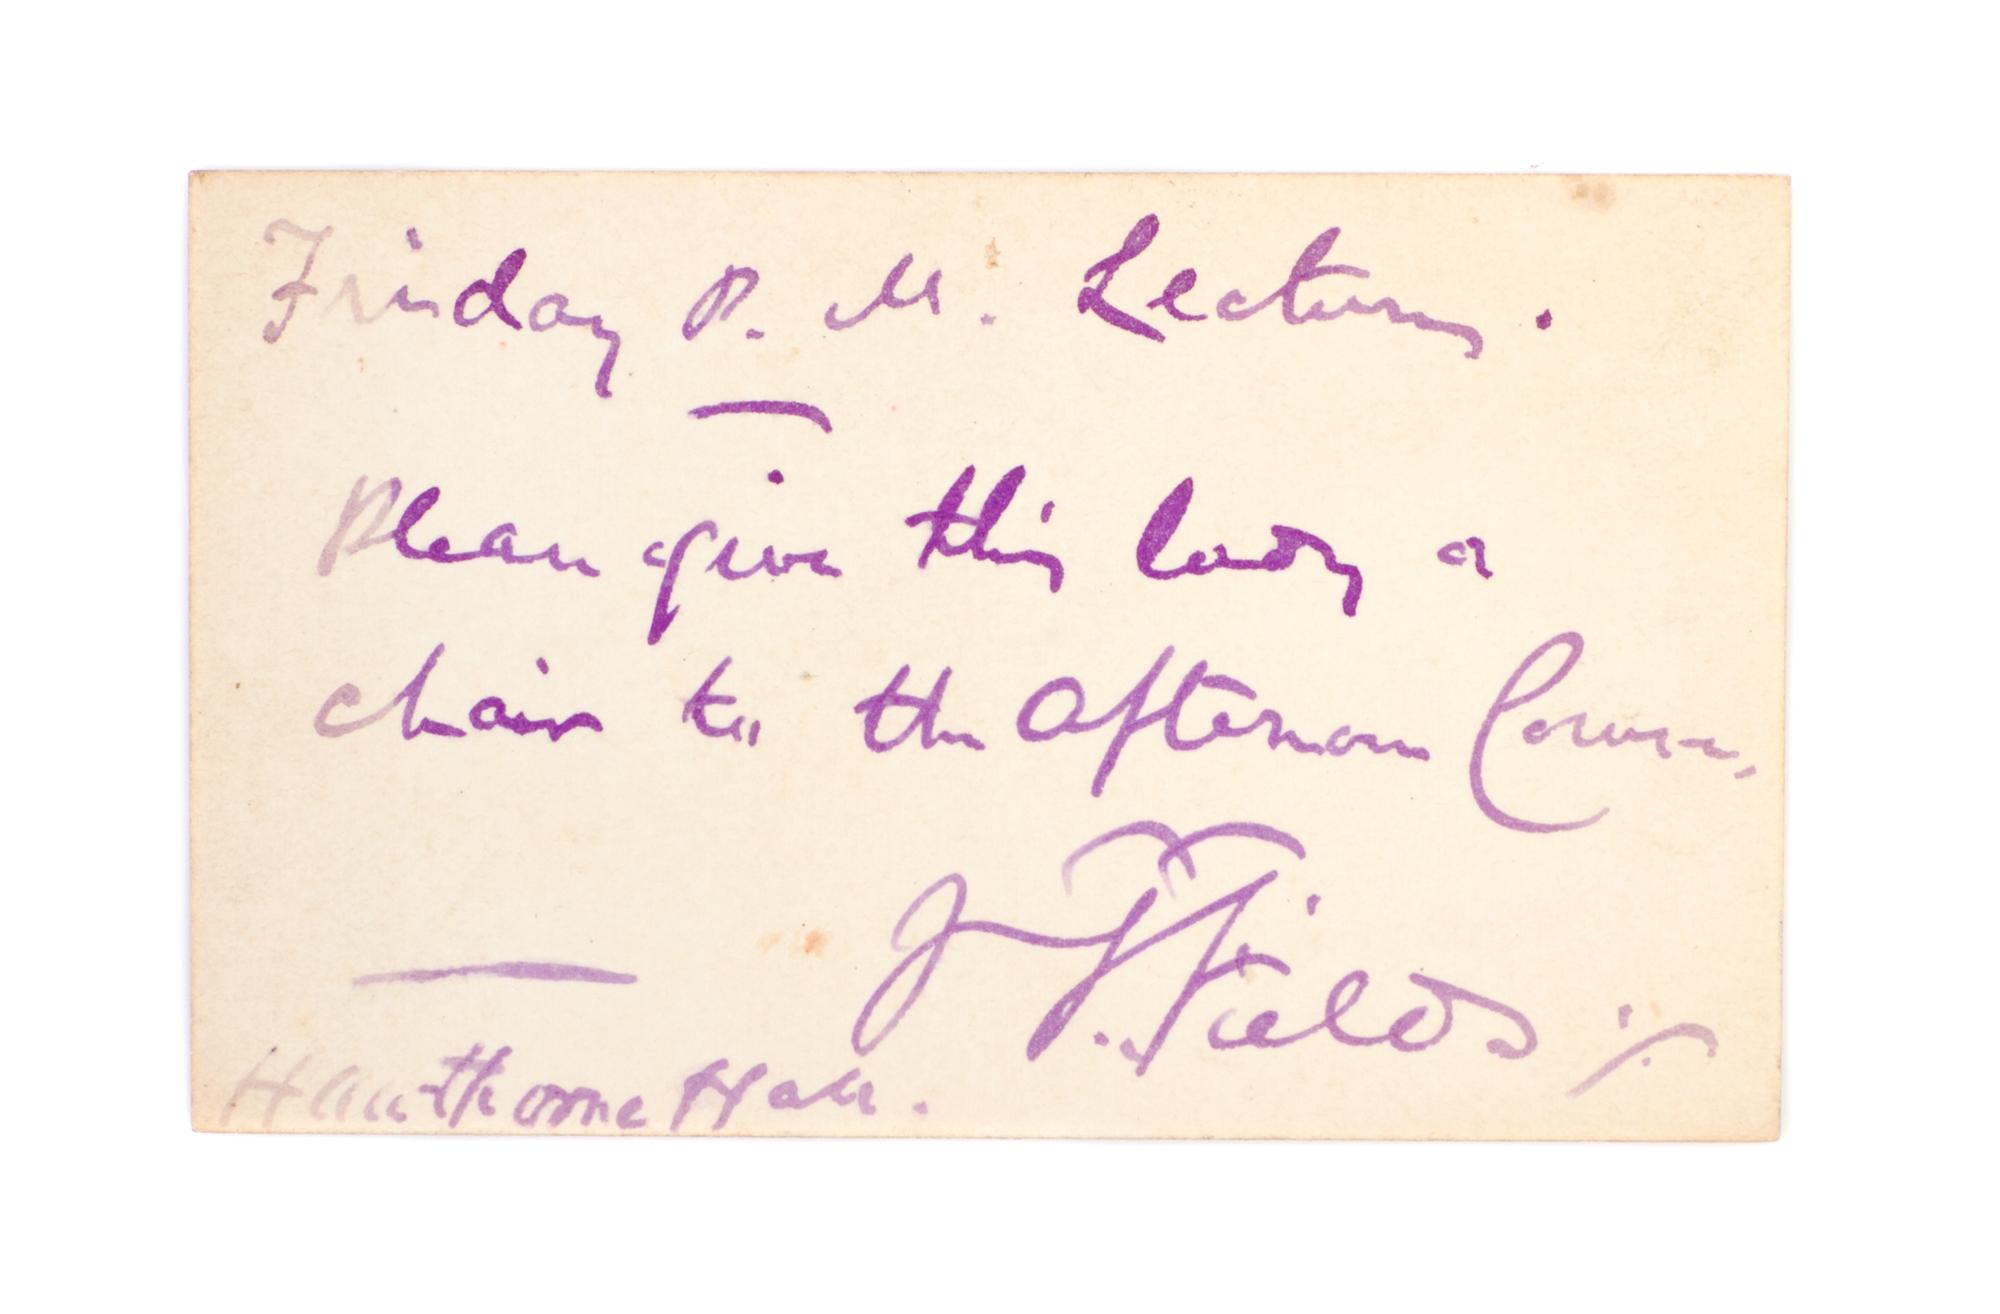 Friday P. M. Lectures.
Please give this lady a
chair to the afternoon Course,
J T. Fields
Hawthorne Hall.